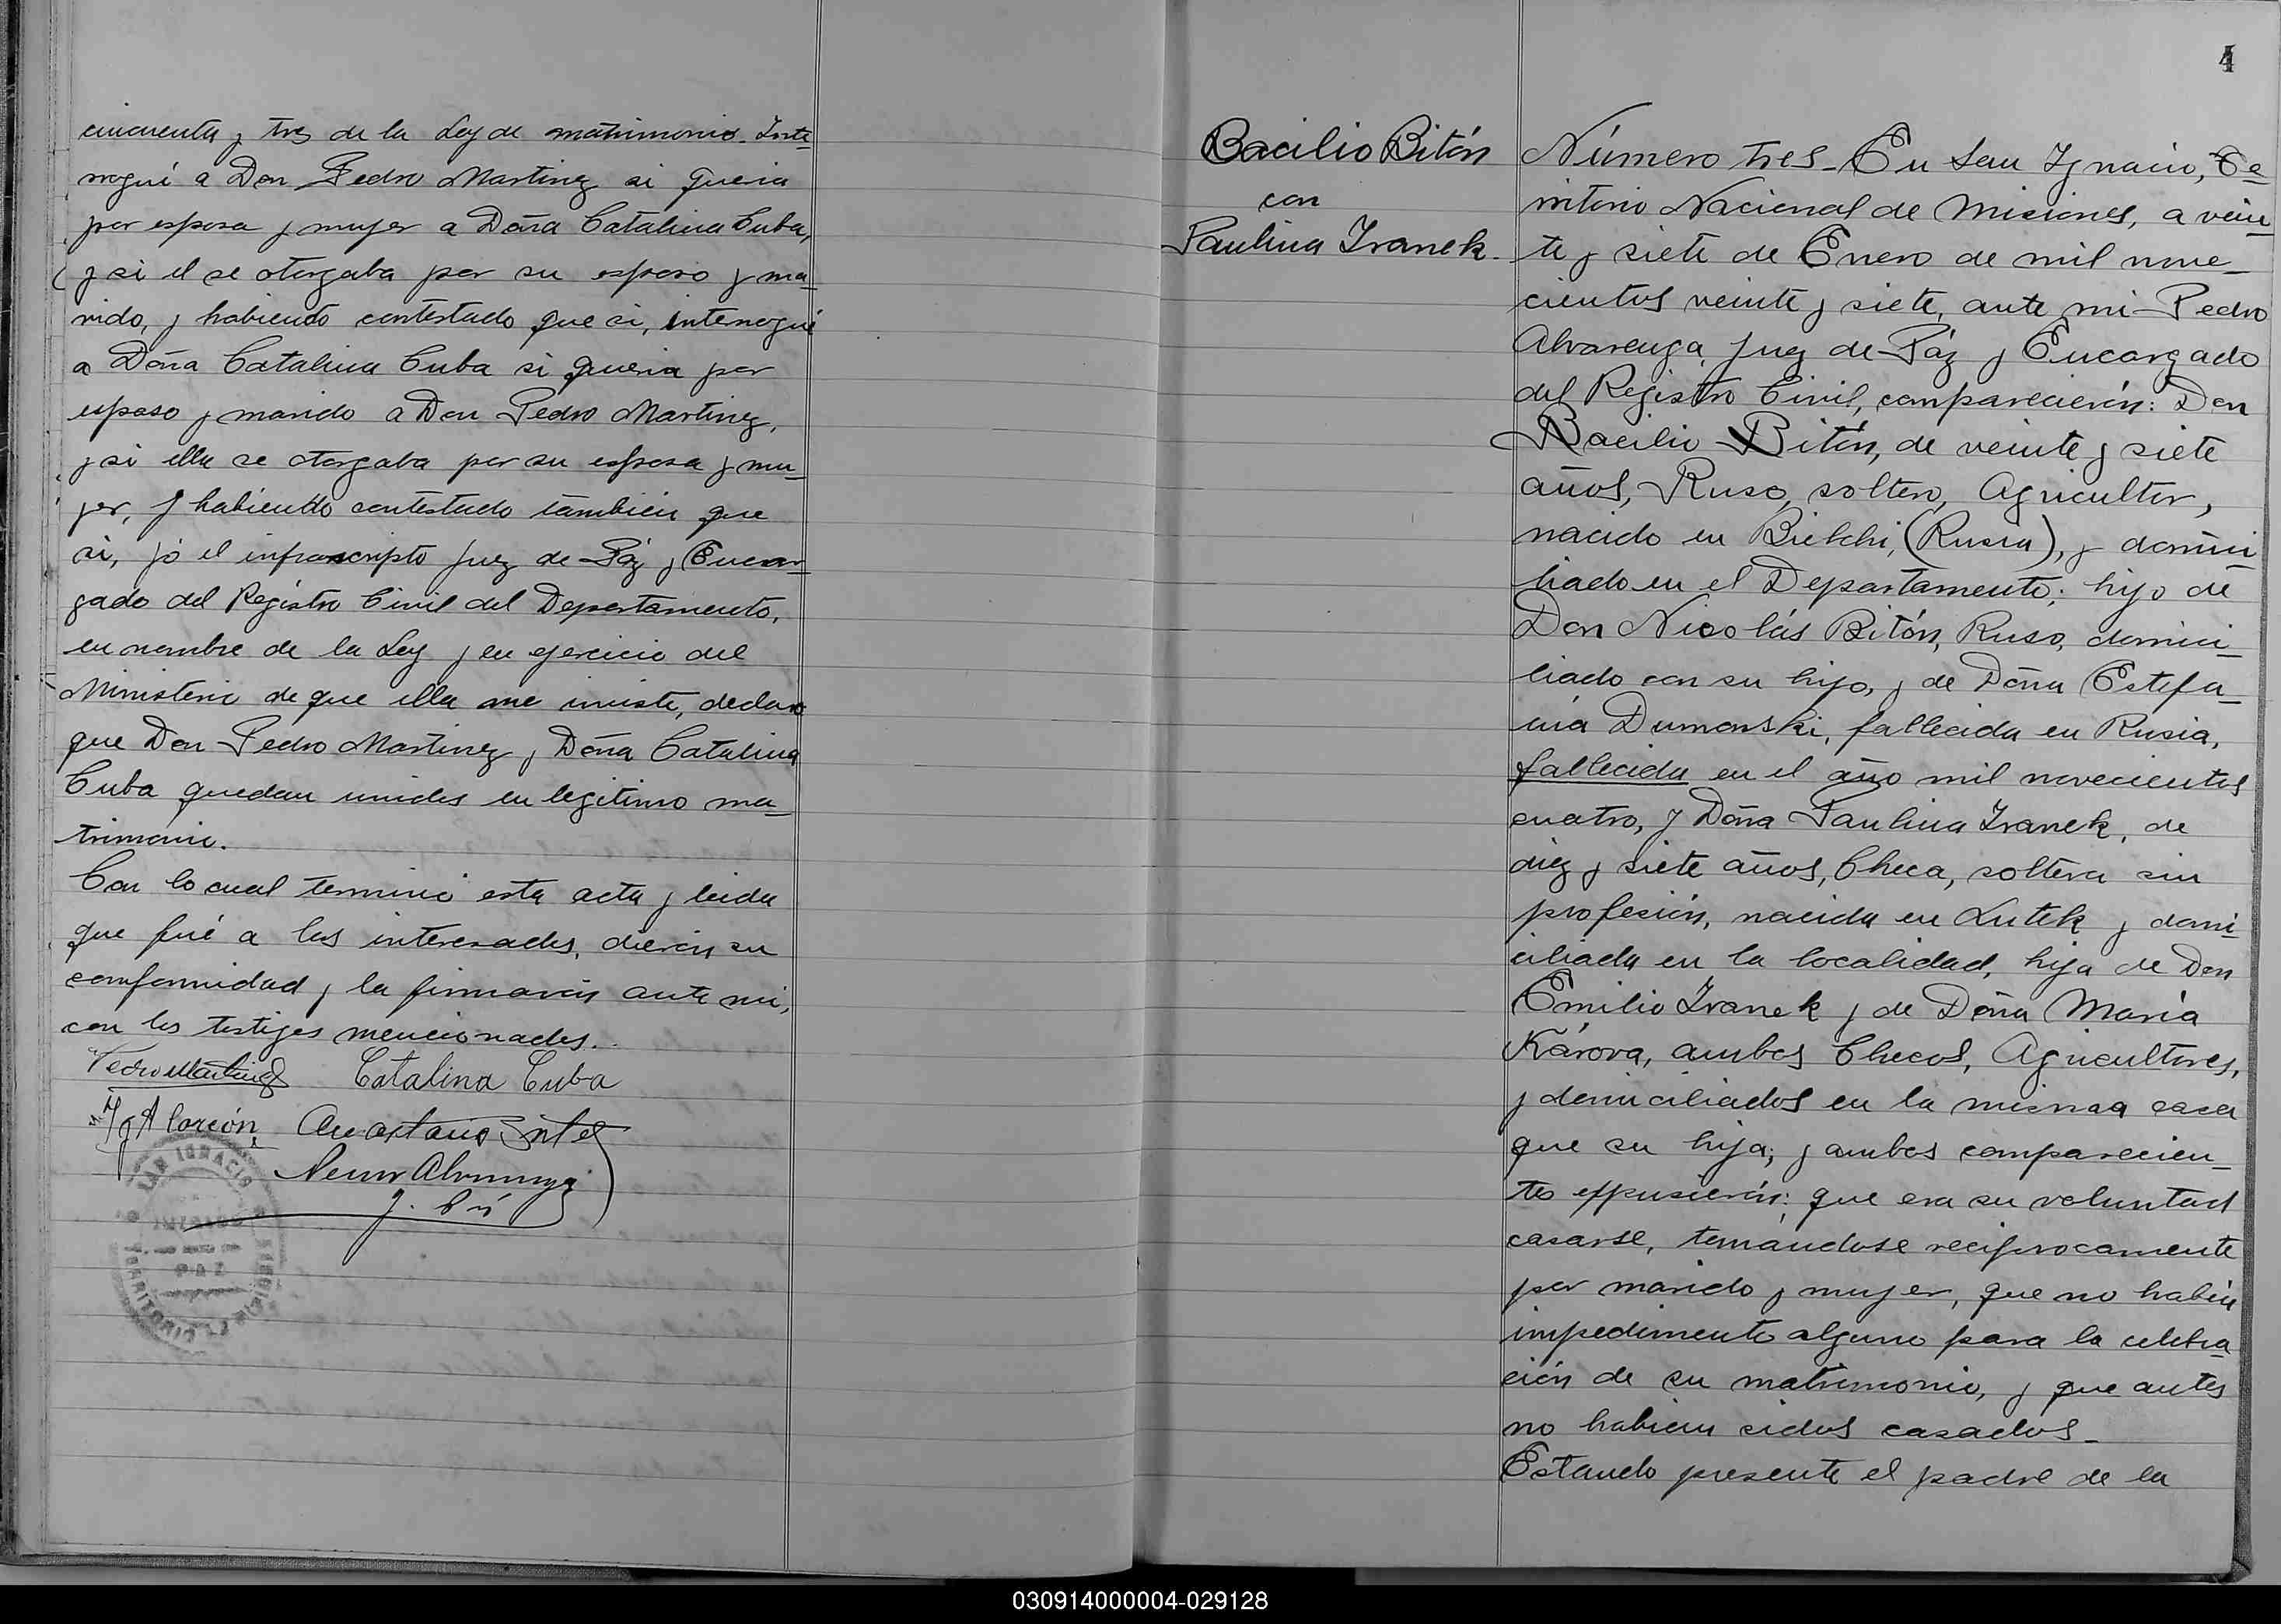 cincuenta y tres de la Ley de matrimonio. Inte-
rrogué a Don Pedro Martinez si queria
por esposa y mujer a Doña Catalina Cuba,
y si él se otorgaba por su esposo y ma-
rido, y habiendo contestado que si, interrogué
a Doña Catalina Cuba si queria por
esposo y marido a Don Pedro Martinez,
y si ella se otorgaba por su esposa y mu-
jer, y habiendo contestado tambien que
si, yó el infrascripto Juez de Páz y Encar-
gado del Registro Civil del Departamento,
en nombre de la Ley y en ejercicio del
Ministerio de que ella me inviste, declaro
que Don Pedro Martinez y Doña Catalina
Cuba quedan unidos en legitimo ma-
trimonio.
Con lo cual terminó esta acta y leida
que fué a los interesados, dierón su
conformidad y la firmarón ante mi,
con los testigos mencionados.
Pedro Martinez Catalina Cuba
Alarcón
SAN IGNACIO
PAZ
4
Bacilio Bitón
con
Paulina Ivanek.
Número tres_ En San Ignacio, Te-
rritorio Nacional de Misiones, a vein-
te y siete de Enero de mil nove-
cientos veinte y siete, ante mi Pedro
Alvarenga Juez de Páz y Encargado
del Registro Civil, comparecierón: Don
Bacilio Bitón, de veinte y siete
años, Ruso, soltero, Agricultor,
nacido en Bielchi, (Rusia), y domici
liado en el Departamento; hijo de
Don Nicolás Bitón, Ruso, domici-
liado con su hijo, y de Doña Estefa-
nia Dumanski, fallecida en Rusia,
fallecida en el año mil novecientos
cuatro, y Doña Paulina Ivanek, de
diez y siete años, Checa, soltera sin
profesión, nacida en Lutek y domi-
ciliada en la localidad, hija de Don
Emilio Ivanek y de Doña María
Károva, ambos Checos, Agricultores,
y domiciliados en la misma casa
que su hija; y ambos comparecien-
tes expusierón: que era su voluntad
casarse, tomándose reciprocamente
por marido y mujer, que no habia
impedimento alguno para la celebra-
ción de su matrimonio, y que antes
no habian sidos casados_
Estando presente el padre de la
030914000004-029128